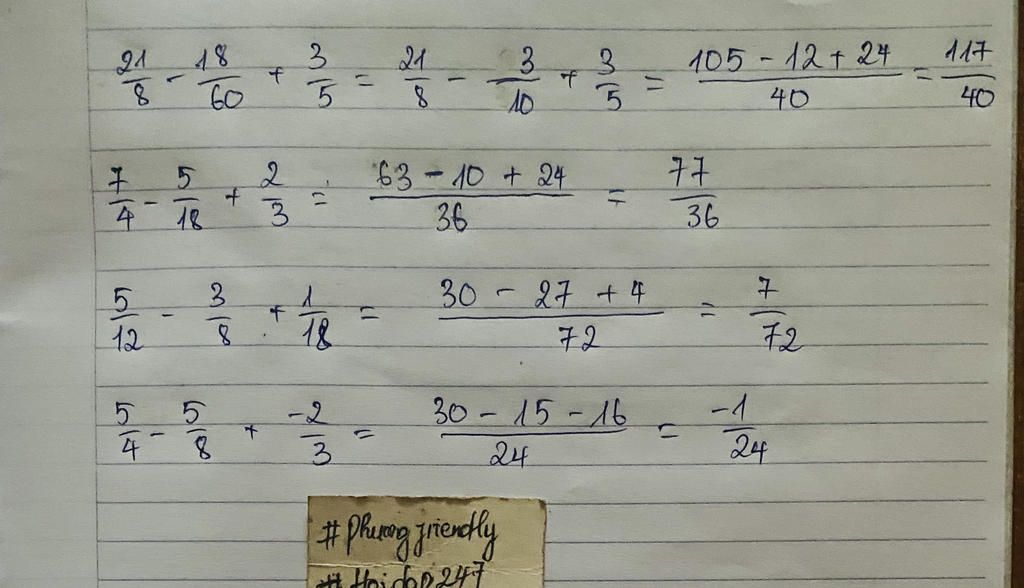 21/8 - 18/60 + 3/5 = 21/8 - 3/10 + 3/5 = (105 - 12 + 24)/40 = 117/40
7/4 - 5/18 + 2/3 = (63 - 10 + 24)/36 = 77/36
5/12 - 3/8 + 1/18 = (30 - 27 + 4)/72 = 7/72
5/4 - 5/8 + -2/3 = (30 - 15 - 16)/24 = -1/24
#Phuongfriendly
#Hoidap247